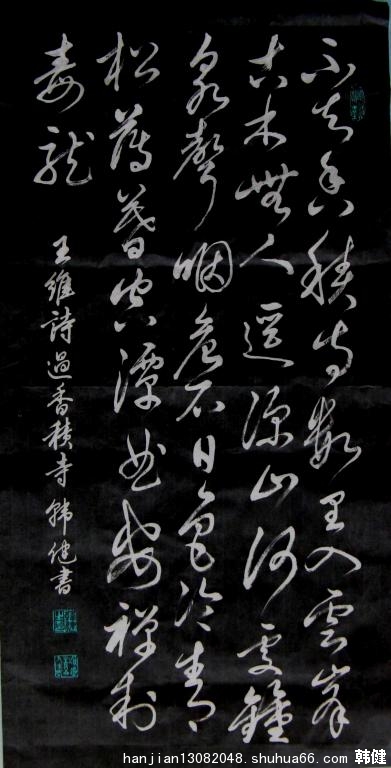 不知香積寺數里入雲峯
古木無人逕深山何處鐘
泉聲咽危石日色冷青
松薄暮空潭曲安禪制
毒龍
王維詩過香積寺韓健書
hanjian13082048.shuhua66.com 韩健